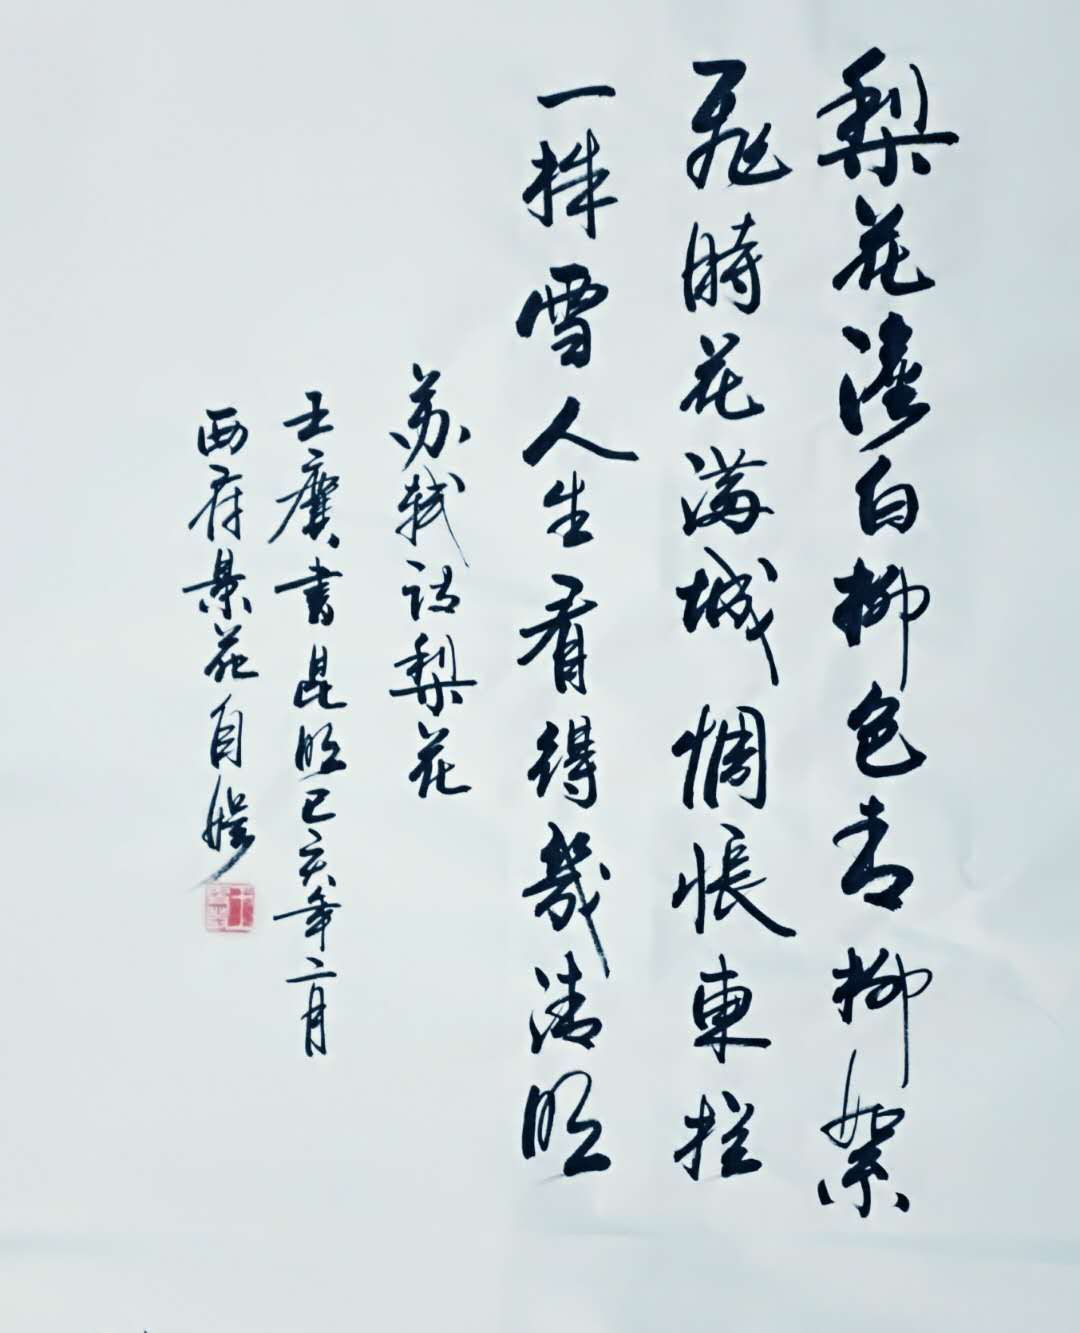 梨花淡白柳色青柳絮
飛時花满城惆悵東栏
一株雪人生看得幾清明
苏轼诗梨花
王書昆明己亥年二月
西府景花自娱